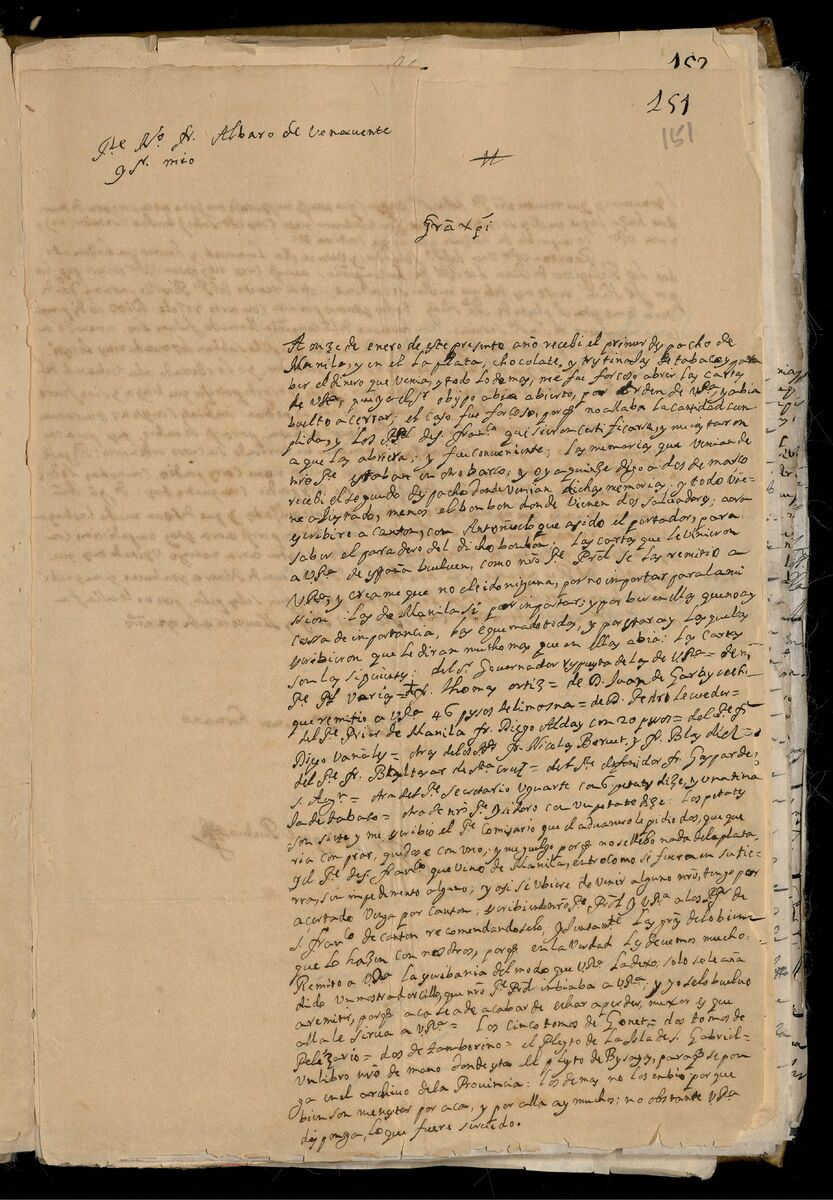 152
151
151
Pe. No. fr. Albaro de Venavente
y Sr. mio
Gra xpi
A onze de enero de este presente año recebi el primer despacho de
Manila, y en el la plata, chocolate, y tabaco, y para
ber el dinero que venia, y todo lo demas, me fue forcoso abrir las cartas
de VRa, obispo abia abierto, por orden de VRa, y abia
buelto a cerrar; el caso fue forcoso, porq no allaba la cantidad cun
plida, y los PPs. de S. Franco. quisieron certificarse, y me instaron
a que las abriera; y fue conveniente; las memorias que venian de
nro Pe. estaban en otro barco, y oy a quinze digo a dos de março
recebi el segundo despacho donde venian dichas memorias, y todo vie
ne ajustado, menos el bonbon donde vienen dos salvadores; aora
escribire a canton, con Antoñuelo que a sido el portador, para
saber el paradero del dicho bonbon. Las cartas que le vinieron
a VRa. de españa buelven, como nro Pe. Prol. se las remitio a
VRa, y creame que no e leido ninguna, por no importar para la mi
ssion. Las de Manila si por importar; y por ber en ellas que no ay
cossa de importancia, las e quemado todas, y por estar ay los que las
escribieron que le diran mucho mas que en ellas abia: las cartas
son las siguientes: del Sr. Governador respuesta de las de VRa = de n
Pe. fr. thomas ortiz = de D. Juan de Garaycoechea
que remitio a VRa 46 pesos de limosna = de D. Pedro Lecueder =
del Pe. Prior de Manila fr. Diego Alday con 20 pesos = del Pe. fr.
Diego Vañales = otras de los PPs fr. Nicolas Beruet, y fr. Blas diez =
del Pe. fr. Balthasar de Sta. Cruz = del Pe. difinidor fr. Gaspar de
S. Augn. = otra del Pe. secretario Vgarte con 6 petates dize, y una tina
ja de tabaco = otra de nro Pe. Ysidoro con un petate dize: los petates
son siete y me escribio el Pe. Comisario que el aduanero le pidio dos, que que
ria conprar, quedose con uno; y me huelgo porq no se llebo nada de la plata,
y el Pe. de S. Franco. que vino de Manila, entro como si fuera en su tie
rra, sin impedimento alguno; y asi si ubiere de venir alguno nro, tengo por
acertado venga por Canton; escribiendo nro Pe. Prol. y VRa a los PPs. de
S. Franco. de Canton recomendandoselo, y juntamte. las grs. de lo bien
que lo hazen con nosotros, porq en la verdad les devemos mucho.
Remito a VRa la escribania del modo que VRa la dexo: solo se le aña
dido un mostradorcillo, que nro Pe. Prol. inbiaba a VRa; y yo se lo buelvo
a remitir, porq aca se a de acabar de echar a perder, mexor es que
alla le sirva a VRa = Los cinco tomos de Gonet = dos tomos de
Pelizario = dos de tamborino = el Pleyto de la Isla de S. Gabriel =
Un libro nro de mano donde esta el pleyto de Bysayas, paraq se pon
ga en el archivo de la Provincia: los demas no los enbio porque
bien son menester por aca, y por alla ay muchos; no obstante VRa
disponga, lo que fuere servido.